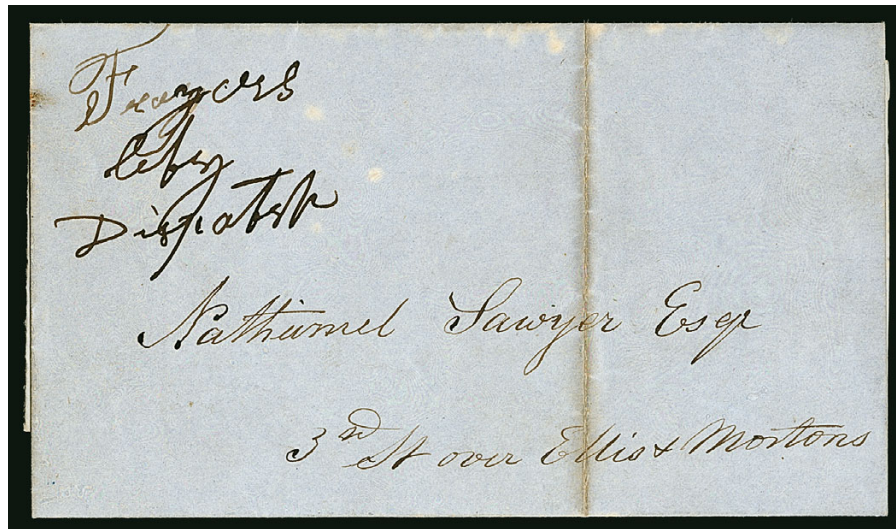 Frazers
City
Dispatch
Nathaniel Sawyer Esqr
3rd St over Ellis & Mortons